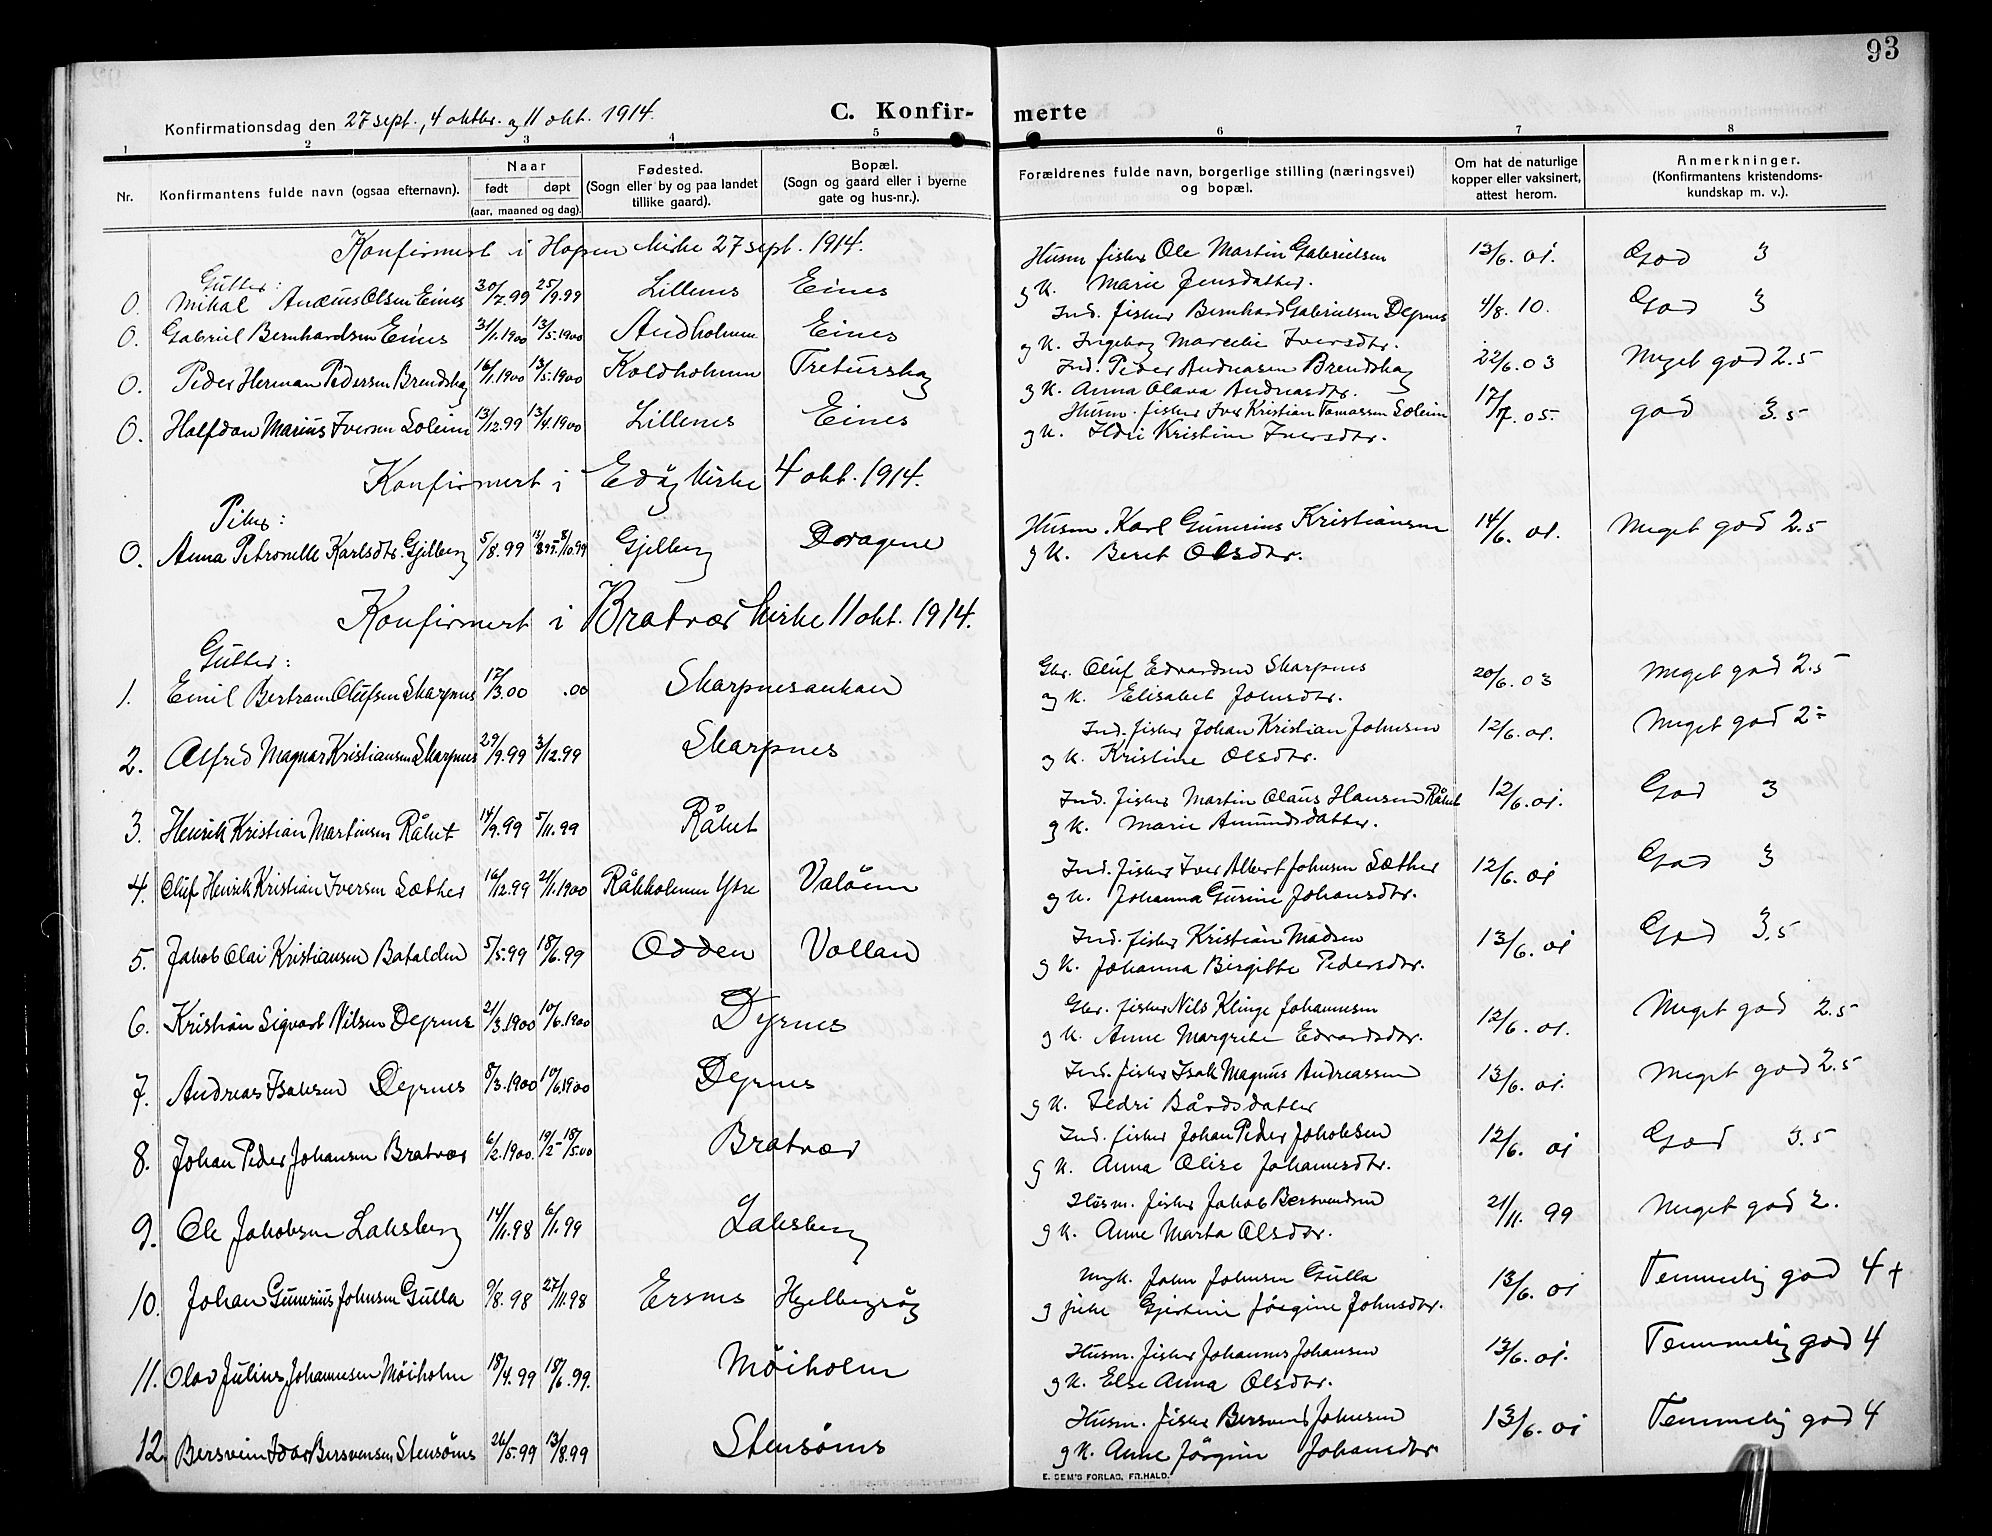 93
C. Konfir- merte
Konfirmationsdag den 27 sept., 4 oktbr. og 11 okt. 1914.
1 2 3 4 5 6 7 8
Nr.
Konfirmantens fulde navn (ogsaa efternavn).
Naar
født døpt
(aar, maaned og dag).
Fødested.
(Sogn eller by og paa landet
tillike gaard).
Bopæl.
(Sogn og gaard eller i byerne
gate og hus-nr.).
Forældrenes fulde navn, borgerlige stilling (næringsvei)
og bopæl.
Om hat de naturlige
kopper eller vaksinert,
attest herom.
Anmerkninger.
(Konfirmantens kristendoms-
kundskap m. v.).
Konfirmert i Hopen kirke 27 sept. 1914.
Gutter:
0. Mikal Olsen Eines 30/7.99 25/9.99 Lillenes Eines Husm fisker Ole Martin Gabrielsen 13/6.01. God 3
og k. Marie Jensdatter.
0. Gabriel Bernhardsen Eines 31/1.1900 13/5.1900 Andholmen Eines Ind. fisker Bernhard Gabrielsen Dyrnes 4/8.10. God 3
og k. Ingebog Iversdtr.
0. Peder Herman Pedersen Brendskag 16/1.1900 13/5.1900 Koldholmen Treturskag Ind. Peder Andreasen Brendskag 22/6.03 Meget god 2.5
og k. Anna Olava Andreasdtr.
0. Halfdan Marius Iversen Soleim 13/12.99 13/4.1900 Lillenes Eines Husm. fisker Iver Kristian Tomassen Soleim 17/7.05. god 3.5
og k. Ildri Kristine Iversdtr.
Konfirmert i Edøy kirke 4 okt. 1914.
Piker:
0. Anna Petronelle Karlsdtr. Gjelberg 5/8.99 13/8 99-8/10.99 Gjelberg Dragene Husm. Karl Gunerius Kristiansen 14/6.01. Meget god 2.5
og k. Beret Olsdtr.
Konfirmert i Bratvær kirke 11 okt. 1914.
Gutter:
1. Emil Bertram Olufsen Skarpnes 17/3.00 .00 Skarpnesaukan Gbr. Oluf Edvardsen Skarpnes 20/6.03 Meget god 2.5
og k. Elisabet Johnsdtr.
2. Alfred Magnar Kristiansen Skarpnes 29/9.99 3/12.99 Skarpnes Ind. fisker Johan Kristian Johnsen 12/6.01. Meget god 2-
og k. Kristine Olsdtr.
3. Henrik Kristian Martinsen Råket 14/9.99 5/11.99 Råket Ind. fisker Martin Olaus Hansen Råket 12/6.01. God 3
og k. Marie Amundsdatter.
4. Oluf Henrik Kristian Iversen Sæther 16/12.99 21/1.1900 Råkholmen Ytre Valøen Ind. fisker Iver Albert Johnsen Sæther 12/6.01 God 3
og k. Johanna Gurine Johansdtr.
5. Jakob Olai Kristiansen Batalden 5/5.99 18/6.99 Odden Vollan Ind. fisker Kristian Madsen 13/6.01 God 3.5
og k. Johanna Birgitte Pedersdtr.
6. Kristian Sigvart Nilsen Dyrnes 21/3.1900 10/6.1900 Dyrnes Gbr. fisker Nils Klinge Johannesen 12/6.01. Meget god 2.5
og k. Anne Margrete Edvardsdtr.
7. Andreas Isaksen Dyrnes 8/3.1900 10/6.1900 Dyrnes Ind. fisker Isak Magnus Andreassen 13/6.01. Meget god 2.5
og k. Ildri Bårdsdatter
8. Johan Peder Johansen Bratvær 6/2.1900. 19/2-18/5.00 Bratvær Ind. fisker Johan Peder Jakobsen 12/6.01 God 3.5
og k. Anna Olise Johannesdtr.
9. Ole Jakobsen Laksberg 14/11.98 6/1.99 Laksberg Husm. fisker Jakob Bersvendsen 21/11.99 Meget god 2.
og k. Anne Marta Olsdtr.
10. Johan Gunerius Johnsen Gulla 9/8.98 27/11.98 Ersnes Ungk. John Johnsen Gulla 13/6.01 Temmelig god 4+
og pike Gjertine Jørgine Johnsdtr.
11. Olav Julius Johannesen Møiholm 18/4.99 18/6.99. Møiholm Husm. fisker Johannes Johansen 13/6.01. Temmelig god 4
og k. Else Anna Olsdtr.
12. Bersvein Ivar Bersvensen Stensønes 26/5.99 13/8.99 Stensønes Husm. fisker Bersvend Johnsen 13/6.01 Temmelig god 4
og k. Anne Jørgine Johansdtr.
E. SEM'S FORLAG, FR.HALD.